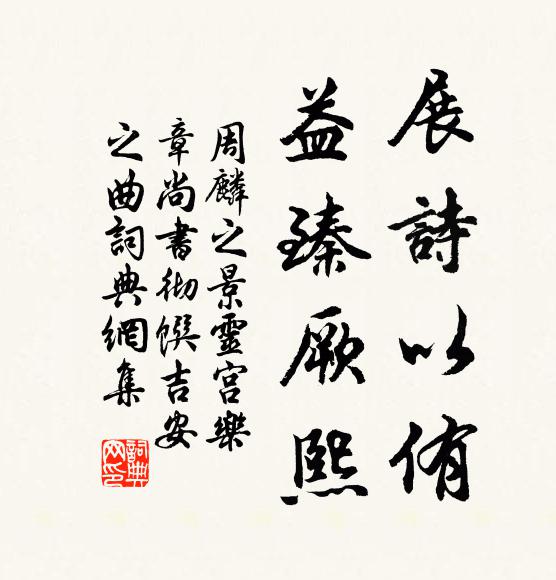 展詩以侑
益臻厥熙
周麟之景靈宮樂
章尚書彻馔吉安
之曲詞典網集
詞典网印